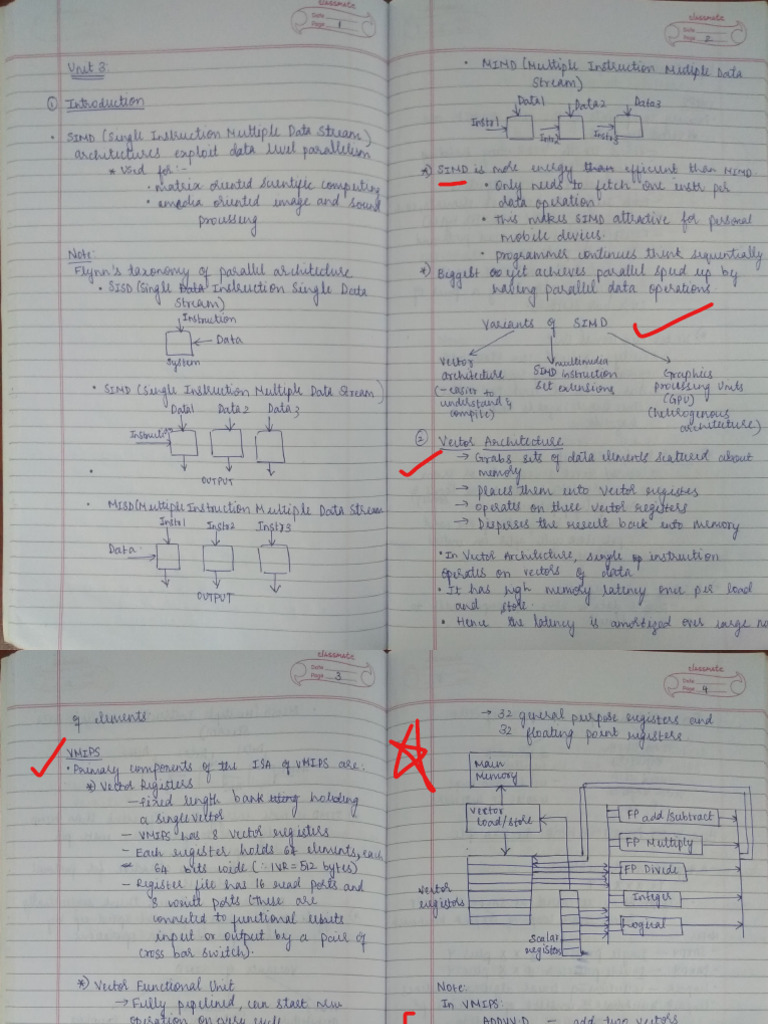 classmate
Date
Page 1
Unit 3
① Introduction
• SIMD (Single Instruction Multiple Data Stream)
architectures exploit data level parallelism
* Used for:-
• matrix oriented scientific computing
• emedia oriented image and sound
processing
Note:
Flynn's taxonomy of parallel architecture
• SISD (Single Data Instruction Single Data
Stream)
Instruction
Data
System
• SIMD (Single Instruction Multiple Data Stream)
Data1 Data2 Data3
Instruction
OUTPUT
• MISD(Multiple Instruction Multiple Data Stream
Instr1 Instr2 Instr3
Data:
OUTPUT
classmate
Date
Page 2
• MIMD (Multiple Instruction Multiple Data
Stream)
Data1 Data2 Data3
Instr1 Intr2 Instr3
*) SIMD is more energy than efficient than MIMD.
• Only needs to fetch one instr per
data operation
• This makes SIMD attractive for personal
mobile devices.
• programmer continues think sequentially
*) Biggest yet achieves parallel speed up by
having parallel data operations
Variants of SIMD
Vector
architecture
(-easier to
understand &
compile)
multimedia
SIMD instruction
set extensions
Graphics
processing Units
(GPU)
(heterogenous
architecture)
② Vector Architecture
→ Grabs sets of data elements scattered about
memory
→ places them into vector registers
→ operates on these vector registers
→ Disperses the result back into memory
• In Vector Architecture, single op instruction
operates on vectors of data
• It has high memory latency once per load
and store.
• Hence the latency is amortized over large
classmate
Date
Page 3
of elements
VMIPS
• Primary components of the ISA of VMIPS are:
*) Vector Registers
— fixed length bank holding
a single vector
— VMIPS has 8 vector registers
— Each register holds 64 elements, each
64 bits wide (∴ 1VR = 512 bytes)
— Register file has 16 read ports and
8 write ports (these are
connected to functional units
input or output by a pair of
cross bar switch).
*) Vector Functional Unit
→ Fully pipelined, can start new
operation on every cycle
classmate
Date
Page 4
→ 32 general purpose registers and
32 floating point registers.
Main
Memory
vector
load/store
vector
registors
scalar
register
FP add/subtract
FP Multiply
FP Divide
Integer
Logical
Note:
In VMIPS:
ADDVV.D — add two vectors